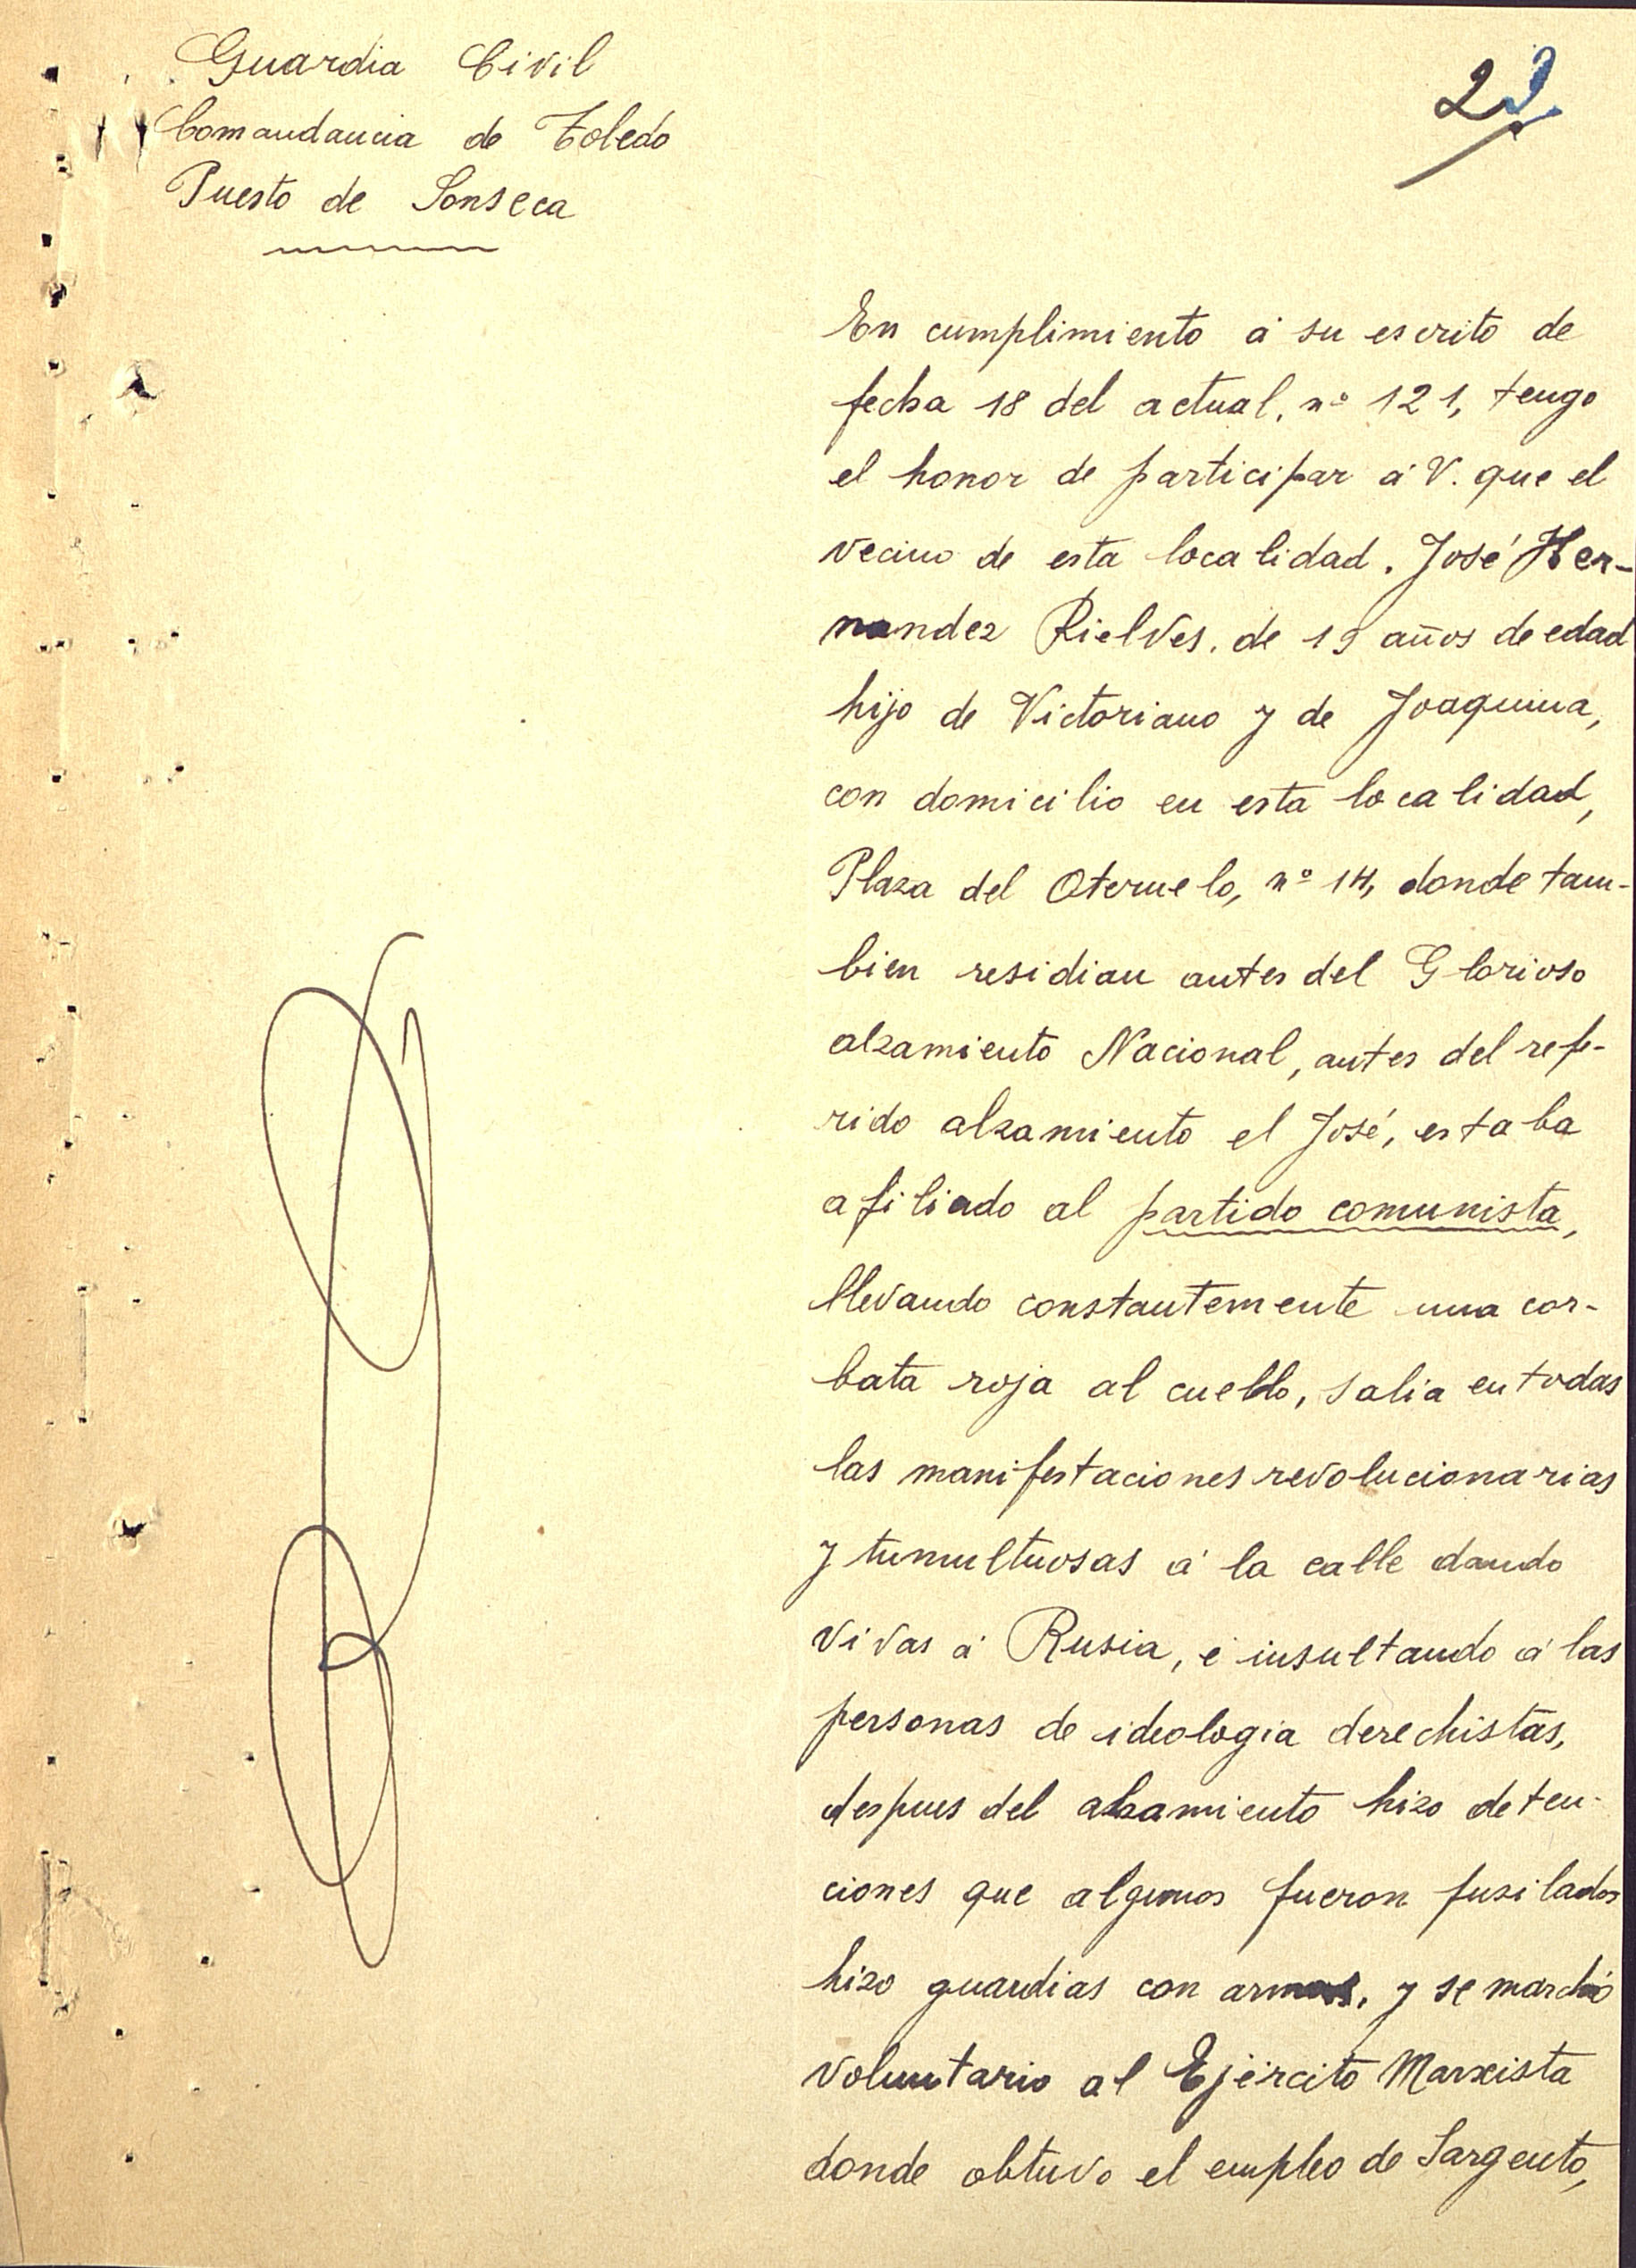 Guardia Civil
Comandancia de Toledo
Puesto de Sonseca
22
En cumplimiento á su escrito de
fecha 18 del actual, nº 121, tengo
el honor de participar á V. que el
vecino de esta localidad. José Her-
nandez Rielves, de 19 años de edad
hijo de Victoriano y de Joaquina,
con domicilio en esta localidad,
Plaza del Oteruelo, nº 14, donde tam-
bien residian antes del Glorioso
alzamiento Nacional, antes del refe-
rido alzamiento el José, estaba
afiliado al partido comunista,
llevando constantemente una cor-
bata roja al cuello, salia en todas
las manifestaciones revolucionarias
y tumultuosas á la calle dando
vivas á Rusia, é insultando á las
personas de ideologia derechistas,
despues del alzamiento hizo deten-
ciones que algunos fueron fusilados
hizo guardias con armas, y se marchó
voluntario al Ejército Marxista
donde obtuvo el empleo de Sargento,